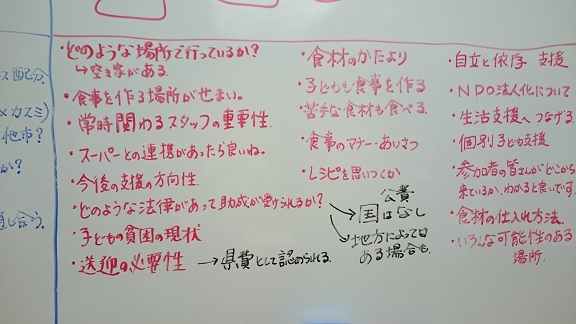 ・どのような場所で行っているか?
↳空き家がある。
・食事を作る場所がせまい。
・常時関わるスタッフの重要性。
・スーパーとの連携があったら良いね。
・今後の支援の方向性。
・どのような法律があって助成が受けられるか?
・子どもの貧困の現状
・送迎の必要性 →県費として認められる。
公費
→国はなし
→地方によっては
ある場合も。
・食材のかたより
・子どもも食事を作る
苦手な食材も食べる。
・食事のマナー・あいさつ
・レシピを思いつくか
・自立と依存 支援
・NPO法人化について
・生活支援へつなげる。
・個別 子ども支援
・参加者の皆さんがどこから
来ているか、わかると良いです。
・食材の仕入れ方法。
・いろんな可能性のある
場所。
ス配分
カスミ)
他市?
か?
し合う。